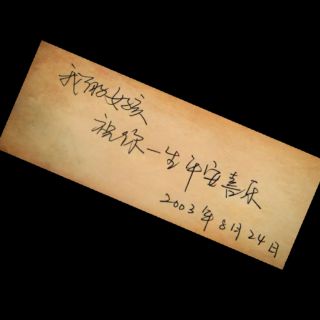 我的女孩
祝你一生平安喜乐
2003年8月24日